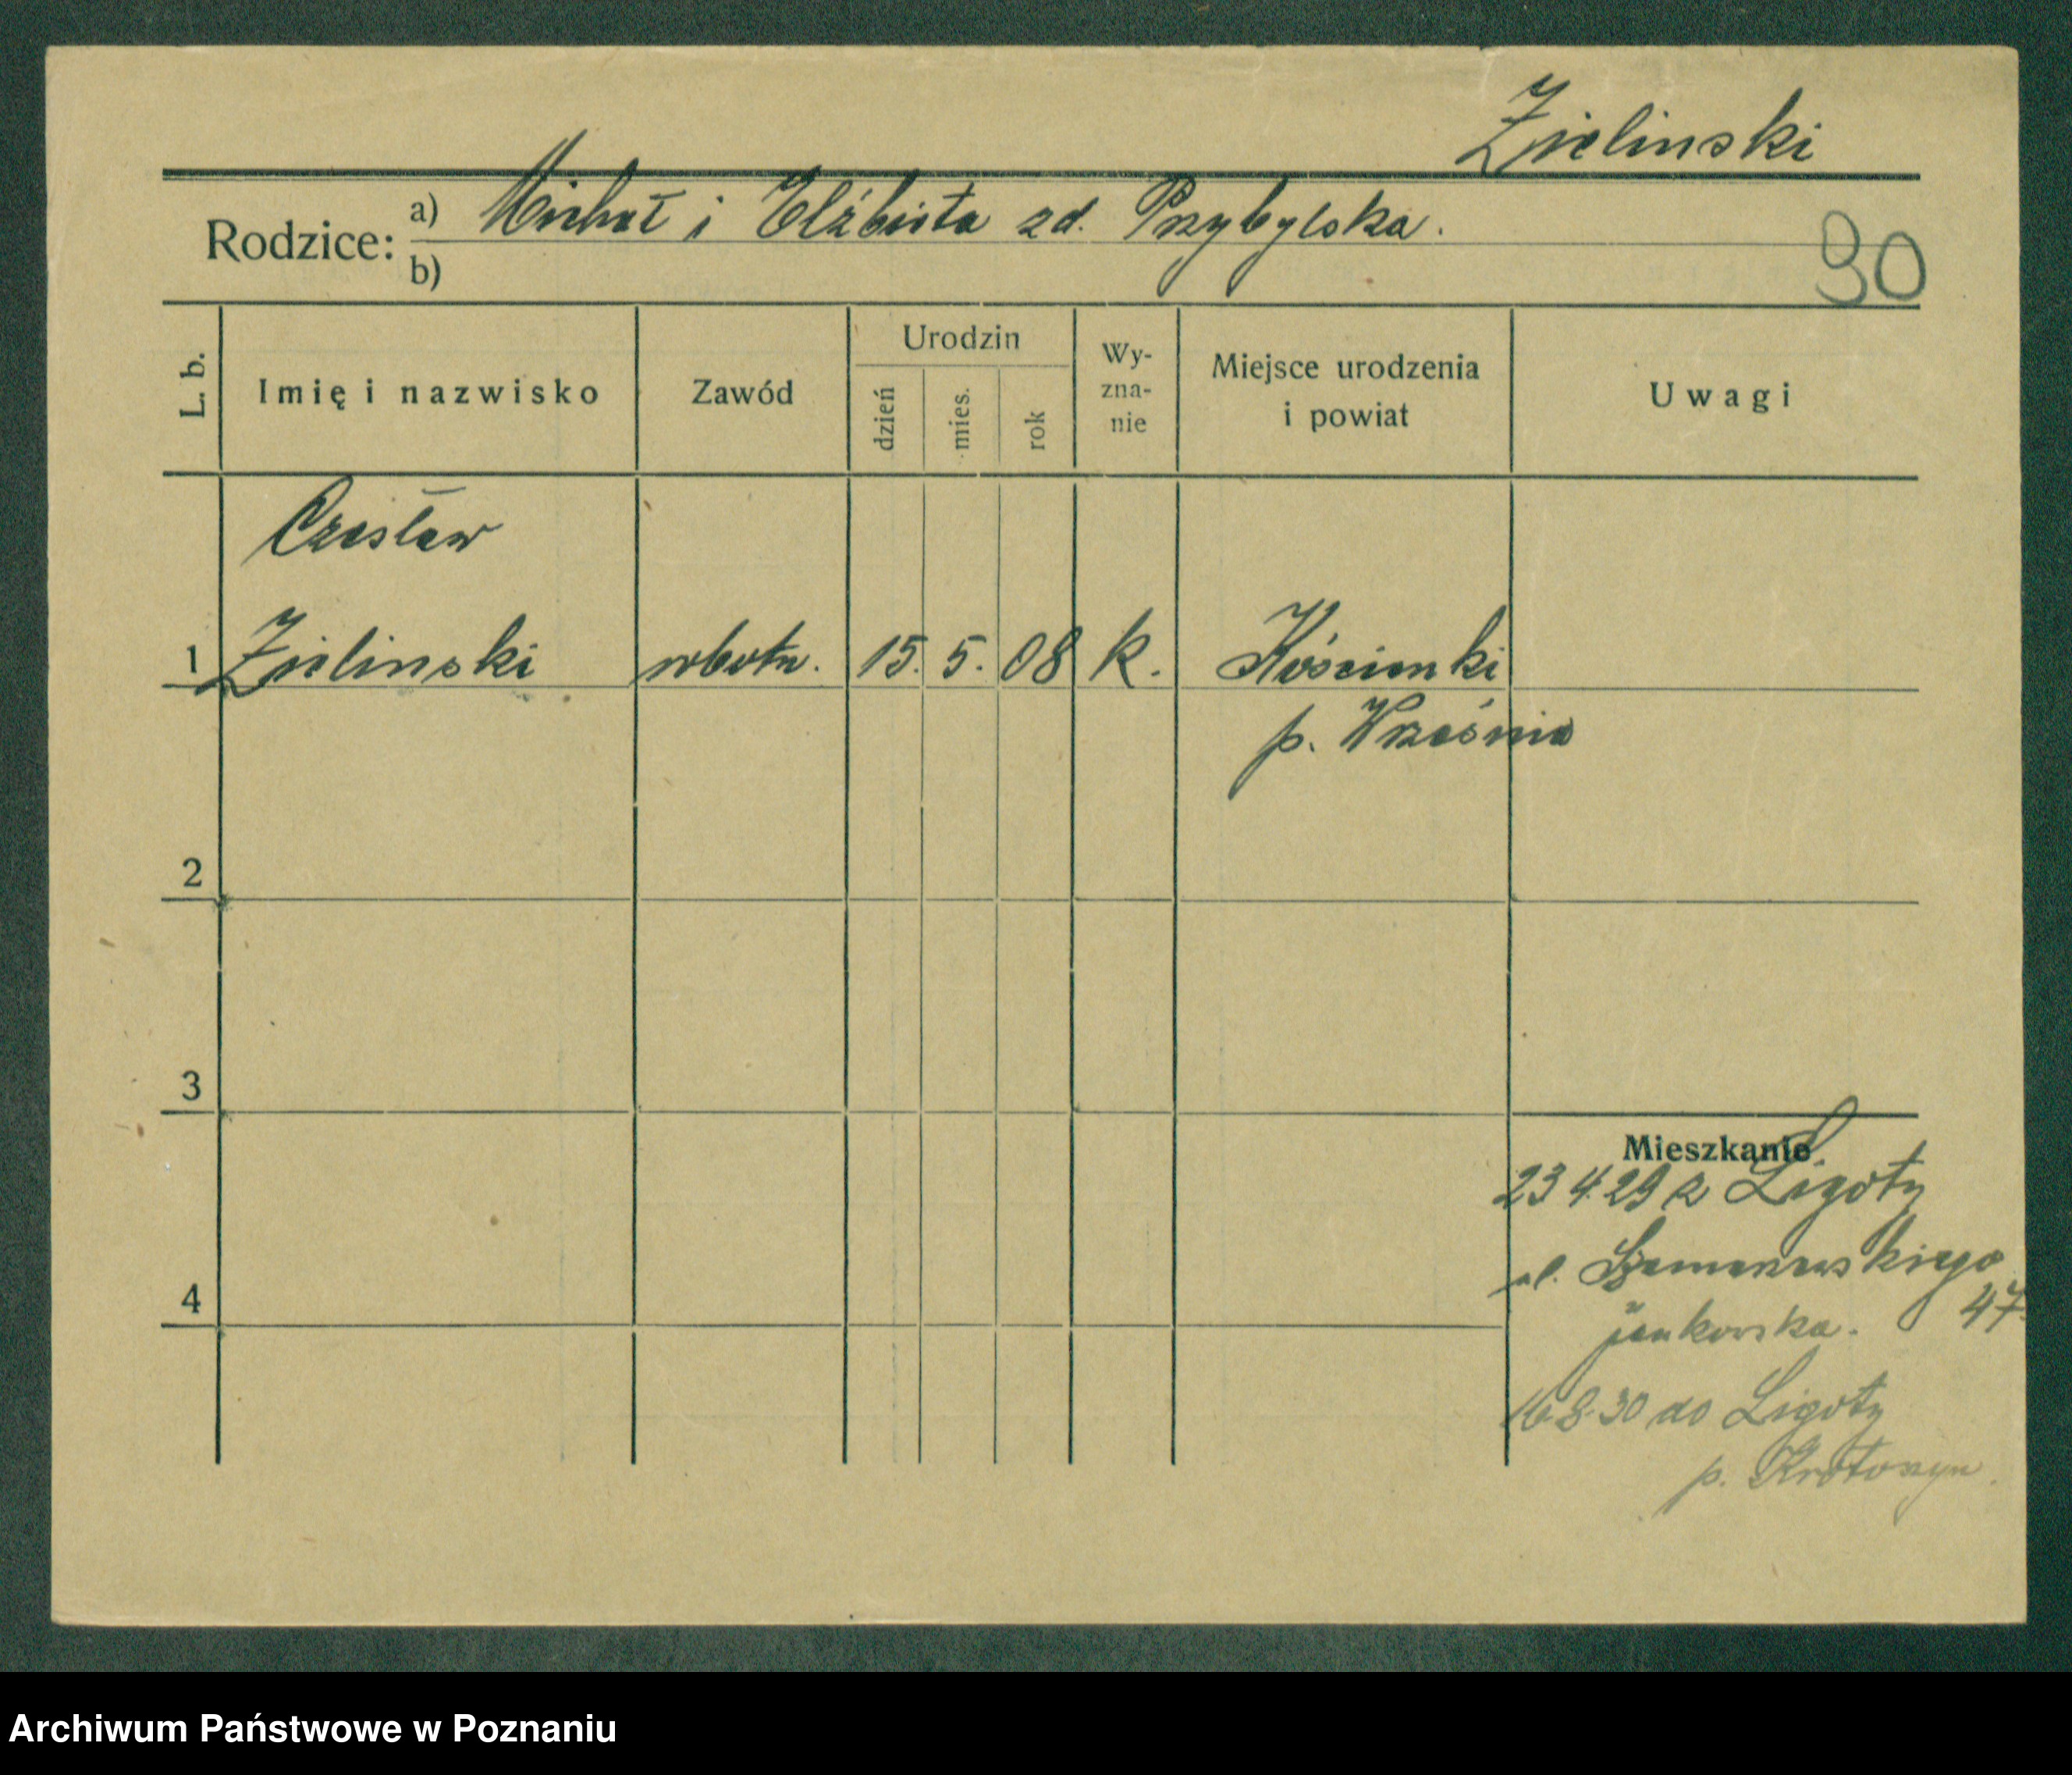 Zielinski
Rodzice: a) Michał i Elżbieta zd. Przybylska.
b)
30
L. b.
Imię i nazwisko
Zawód
Urodzin
dzień
mies.
rok
Wy-
zna-
nie
Miejsce urodzenia
i powiat
Uwagi
Czesław
1 Zielinski robotn. 15. 5. 08 k. Kościanki
p. Września
2
3
Mieszkanie
23 4.29 z Ligoty
ul. Szamarzewskiego
47.
Jankowska.
4
16.8.30 do Ligoty
p. Krotoszyn.
Archiwum Państwowe w Poznaniu